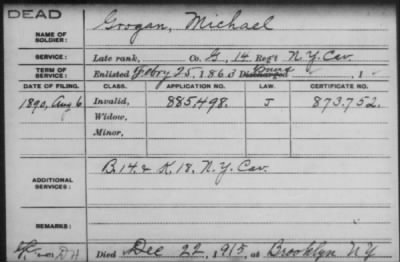 DEAD
NAME OF SOLDIER: Grogan, Michael
SERVICE: Late rank, Co. G, 14 Reg't N.Y. Cav.
TERM OF SERVICE: Enlisted Febry 25, 1863 Discharged , 1
DATE OF FILING. CLASS. APPLICATION NO. LAW. CERTIFICATE NO.
1890, Aug 6 Invalid, 885,498. J 873,752.
Widow,
Minor,
ADDITIONAL SERVICES: B. 14. & K. 18, N.Y. Cav.
REMARKS:
Died Dec 22, 1915, at Brooklyn NY